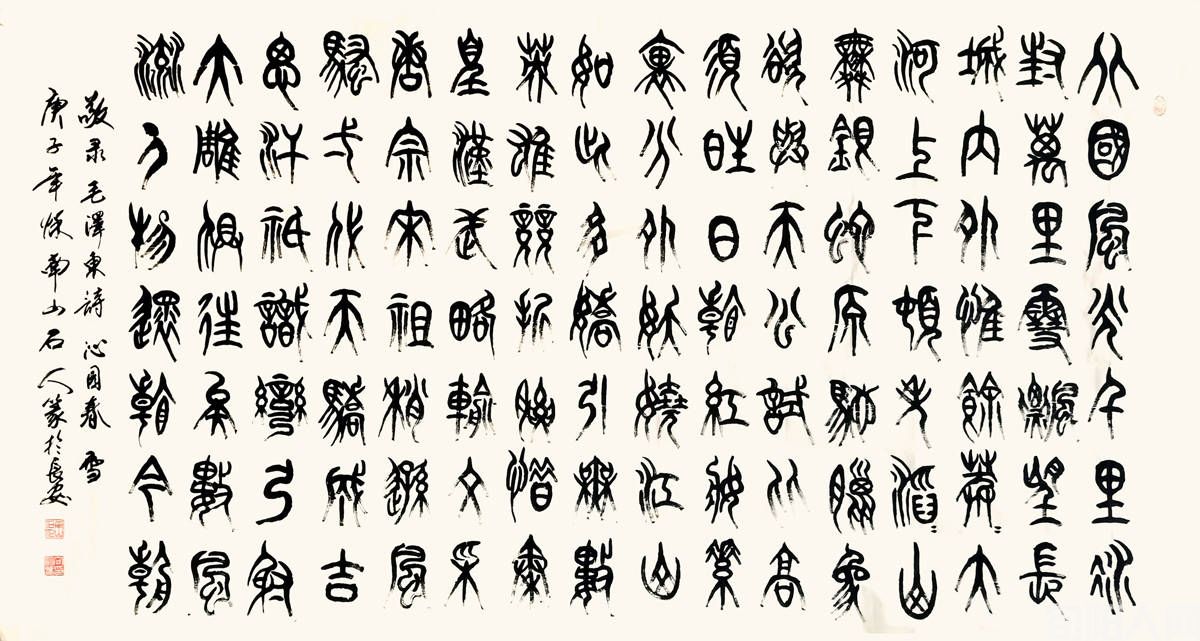 北國風光千里冰
封萬里雪飄望長
城內外惟餘莽〻大
河上下頓失滔〻山
舞銀蛇原馳臘象
欲與天公試比高
須晴日看紅妝素
裹分外妖嬈江山
如此多嬌引無數
英雄競折腰惜秦
皇漢武略輸文采
唐宗宋祖稍遜風
騷弌代天驕成吉
思汗祇識彎弓射
大雕俱往矣數風
流人物還看今朝
敬录毛澤東詩 沁園春 雪
庚子年秌南山石人篆於長安